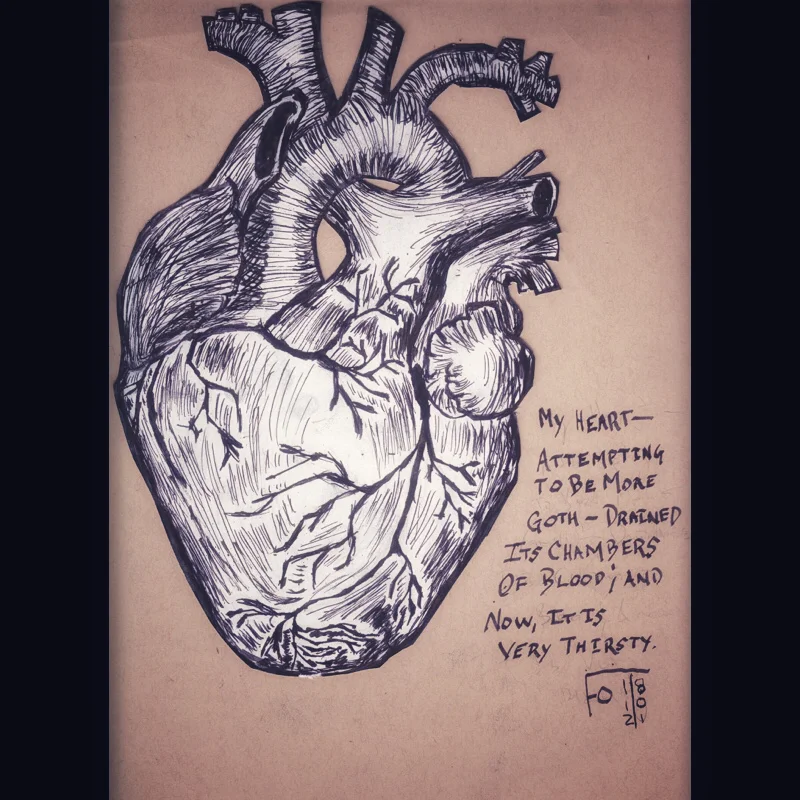 My HEART—
ATTEMPTING
TO BE MORE
GOTH – DRAINED
ITS CHAMBERS
OF BLOOD; AND
NOW, IT IS
VERY THIRSTY.